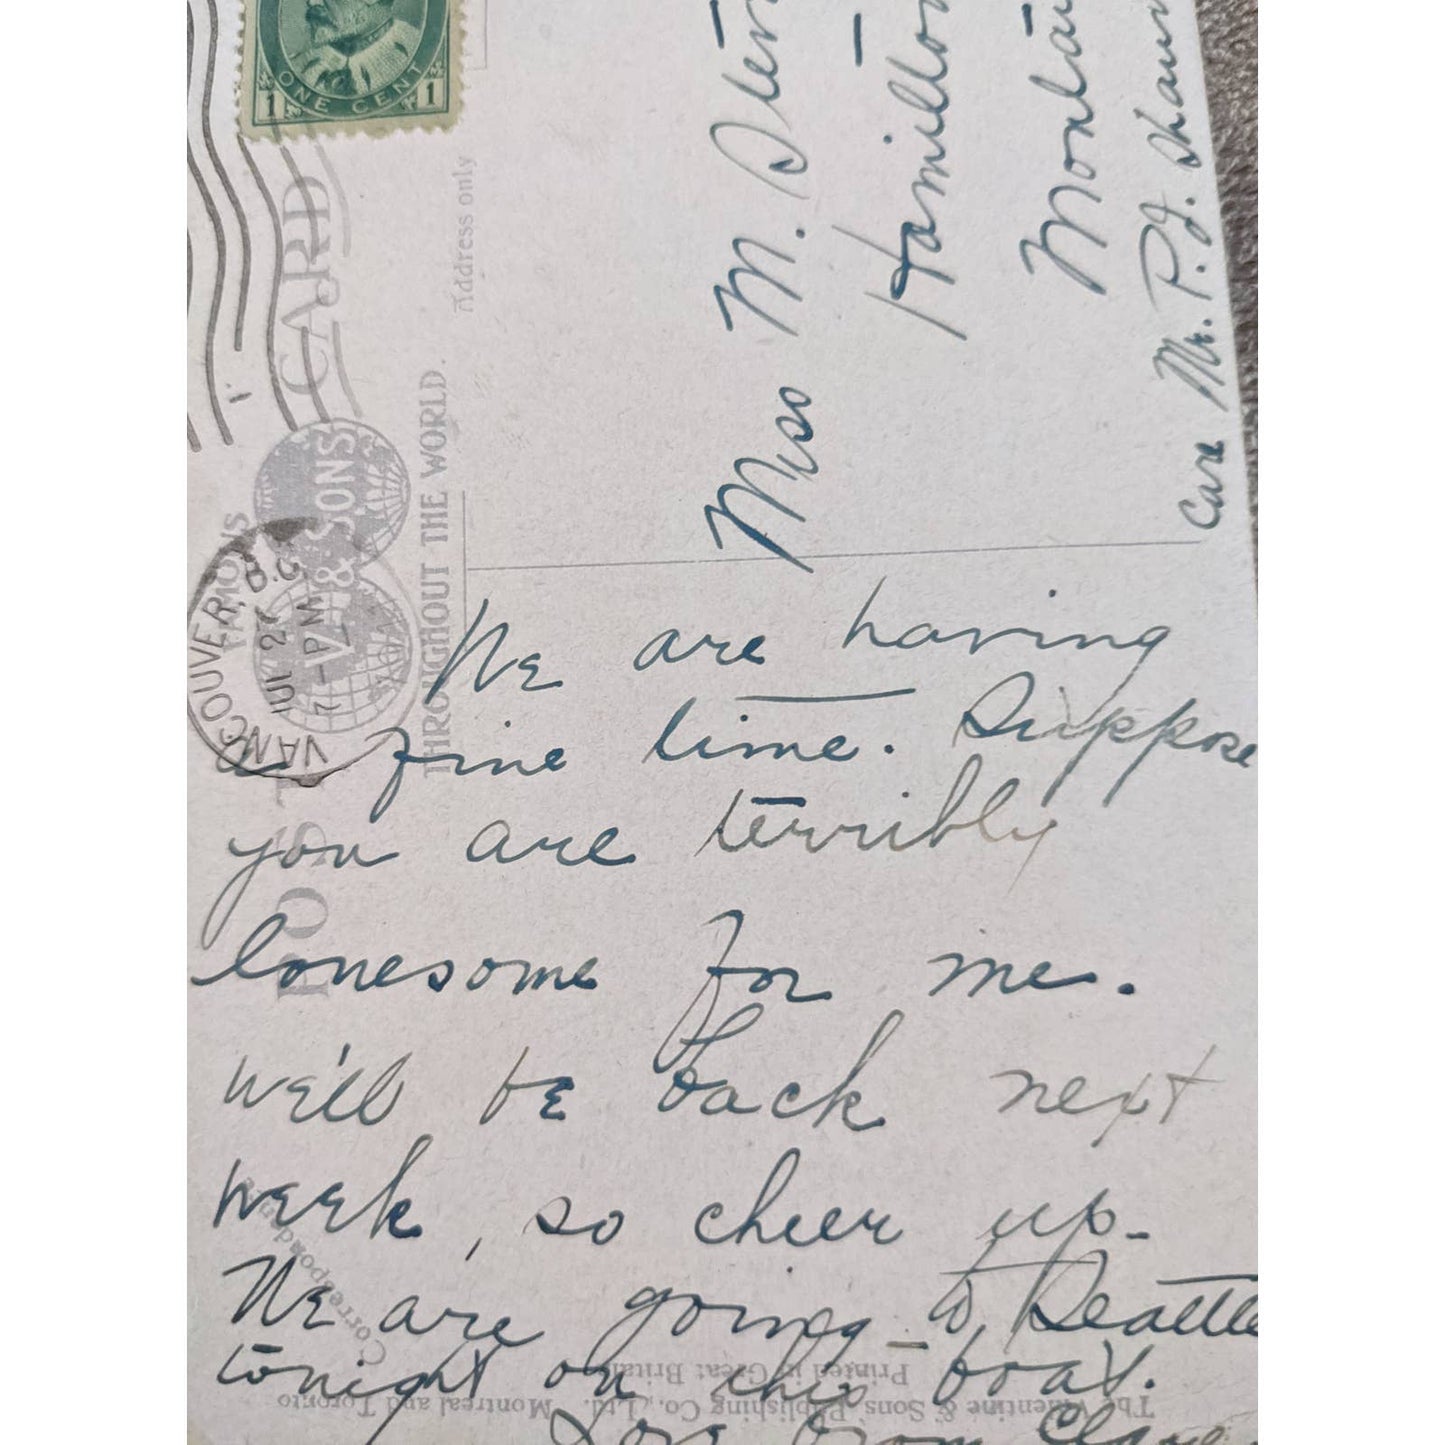 ONE CENT
1 1
CARD
Address only
FAMOUS
& SONS
THROUGHOUT THE WORLD.
VANCOUVER, B.C.
7 - PM
Miss M.
Hamilton
Care Mr. P. J.
We are having
a fine time. Suppose
you are terribly
lonesome for me.
We'll be back next
week, so cheer up -
We are going to Seattle
tonight on this boat.
Love from
Correspondence
Printed in Great Britain
The Valentine & Sons Publishing Co., Ltd. Montreal and Toronto